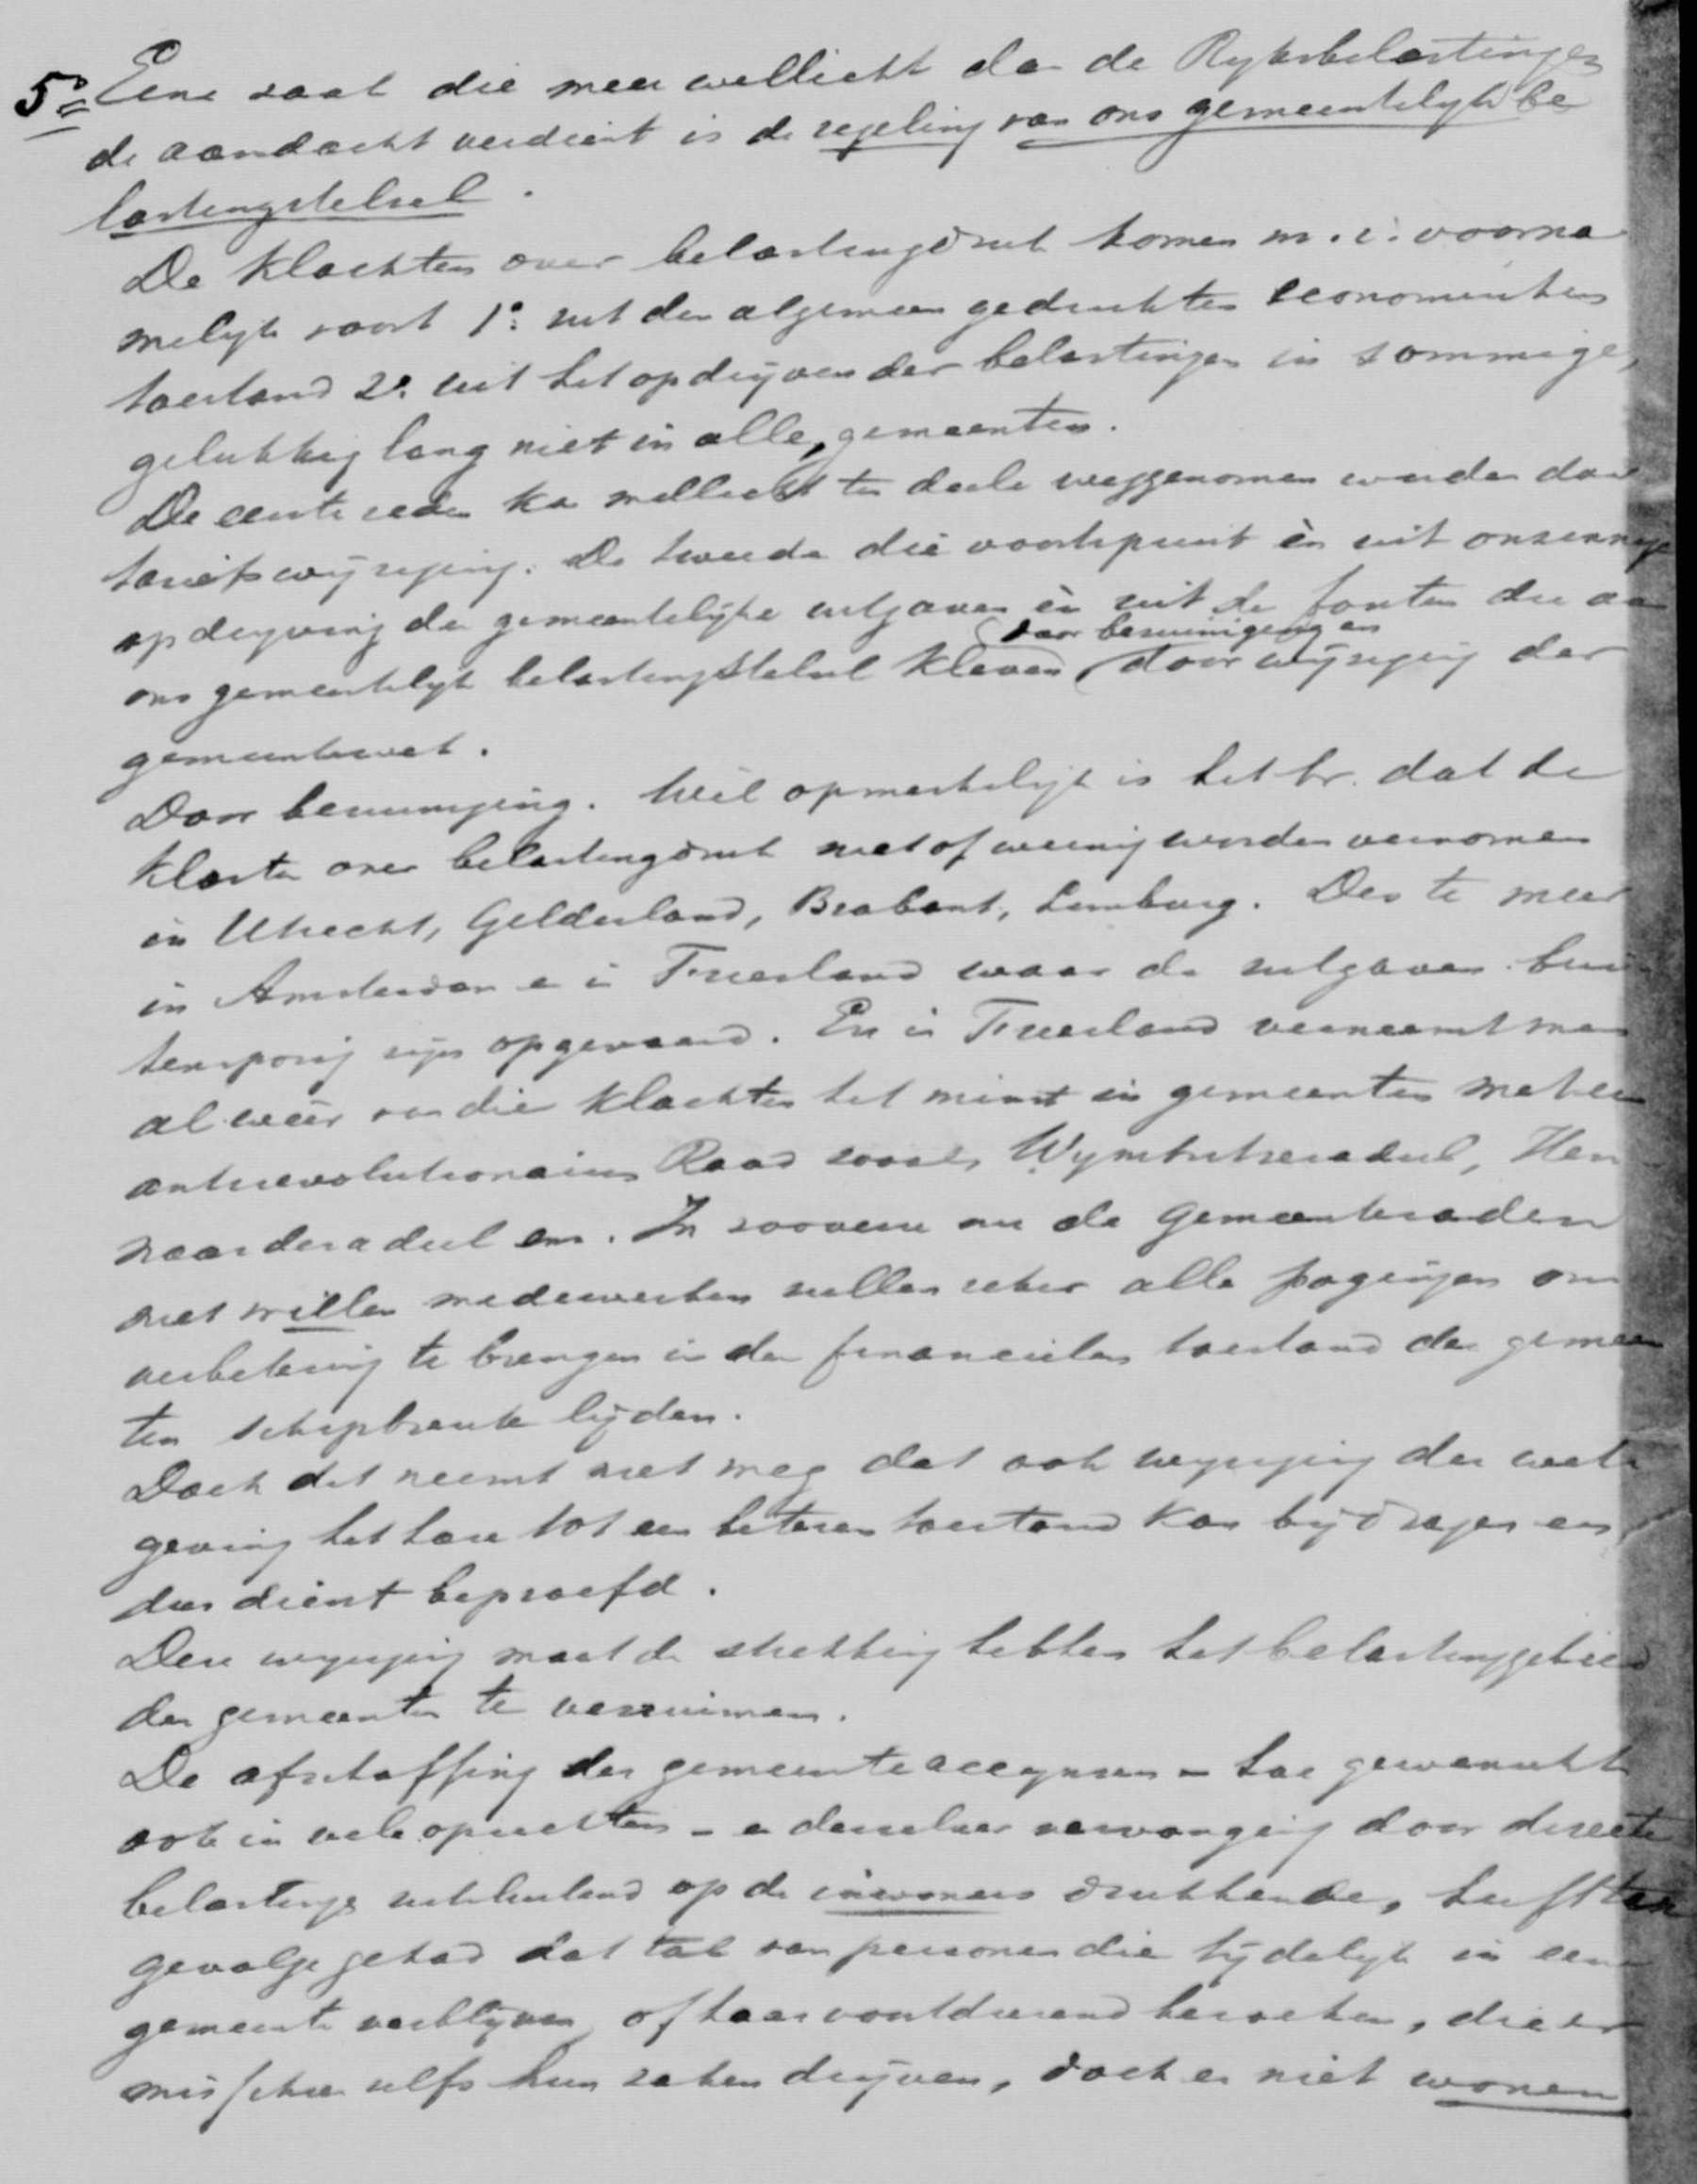 5o Eene zaak die meer wellicht dan de Rijksbelastingen
de aandacht verdient is de regeling van ons gemeentelijk be
lastingstelsel.
De klachten over belastingdruk komen m.i. voorna
melijk voort 1o: uit den algemeen gedrukten economischen
toestand 2o. uit het opdrijven der belastingen in sommige,
gelukkig lang niet in alle, gemeenten.
De eerste reden kan wellicht ten deele weggenomen worden door
tariefswijziging. De tweede die voortspruit èn uit onzinnige
opdrijving der gemeentelijke uitgaven èn uit de fouten die aan
ons gemeentelijk belastingstelsel kleven, door bezuiniging en door wijziging der
gemeentewet.
Door bezuiniging. Wèl opmerkelijk is het br. dat de
klachten over belastingdruk niet of weinig worden vernomen
in Utrecht, Gelderland, Brabant, Limburg. Des te meer
in Amsterdam en in Friesland waar de uitgaven bui
tensporig zijn opgevoerd. En in Friesland verneemt men
al weer van die klachten het minst in gemeenten met een
antirevolutionairen Raad zooals Wymbritseradeel, Hen
naarderadeel enz. In zooverre nu de Gemeenteraden
niet willen medewerken zullen zeker alle pogingen om
verbetering te brengen in den financieelen toestand der gemeen
ten schipbreuk lijden.
Doch dit neemt niet weg dat ook wijziging der wet
geving het hare tot een beteren toestand kan bijdragen en
dus dient beproefd.
Deze wijziging moet de strekking hebben het belastinggebied
der gemeenten te verruimen.
De afschaffing der gemeenteaccijnsen - hoe gewenscht
ook in vele opzichten - en derzelver vervanging door directe
belastinge uitsluitend op de inwoners drukkende, heeft ten
gevolge gehad dat tal van personen die tijdelijk in eene
gemeente verblijven, of haar voortdurend bezoeken, die er
misschien zelfs hun zaken drijven, doch er niet wonen